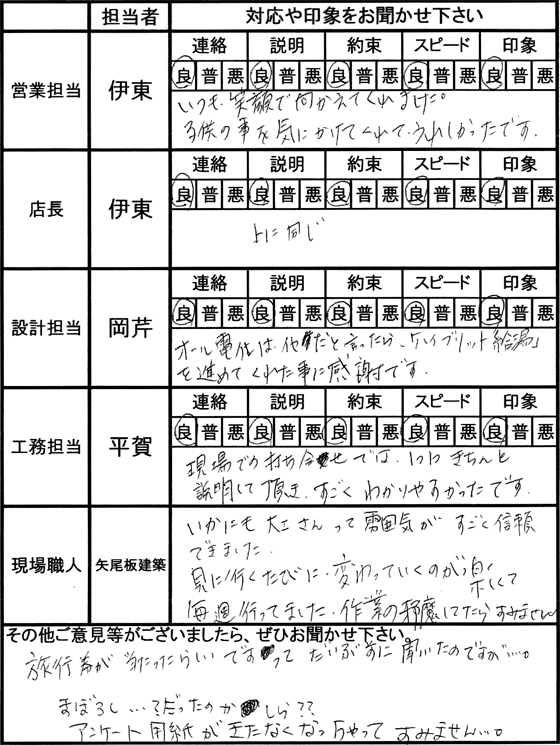 担当者 対応や印象をお聞かせ下さい
営業担当 伊東
連絡 説明 約束 スピード 印象
良 普 悪 良 普 悪 良 普 悪 良 普 悪 良 普 悪
いつも笑顔で何かえてくれました。
子供の事を気にかけてくれて、うれしかったです。
店長 伊東
連絡 説明 約束 スピード 印象
良 普 悪 良 普 悪 良 普 悪 良 普 悪 良 普 悪
上に同じ
設計担当 岡芹
連絡 説明 約束 スピード 印象
良 普 悪 良 普 悪 良 普 悪 良 普 悪 良 普 悪
オール電化は だと言ったら、「ハイブリット給湯」
を進めてくれた事に感謝です。
工務担当 平賀
連絡 説明 約束 スピード 印象
良 普 悪 良 普 悪 良 普 悪 良 普 悪 良 普 悪
現場での打ち合せでは、1つ1つきちんと
説明して頂き、すごくわかりやすかったです。
現場職人 矢尾板建築
いかにも大工さんって雰囲気がすごく信頼
できました。
見に行くたびに、変わっていくのが楽しくて
毎週行ってました。作業の邪魔してたらすみません
その他ご意見等がございましたら、ぜひお聞かせ下さい。
旅行券が当たったらいいですって だいぶ前に聞いたのですが…。
まぼろし…?だったのかしら??
アンケート用紙がきたなくなっちゃってすみません…。